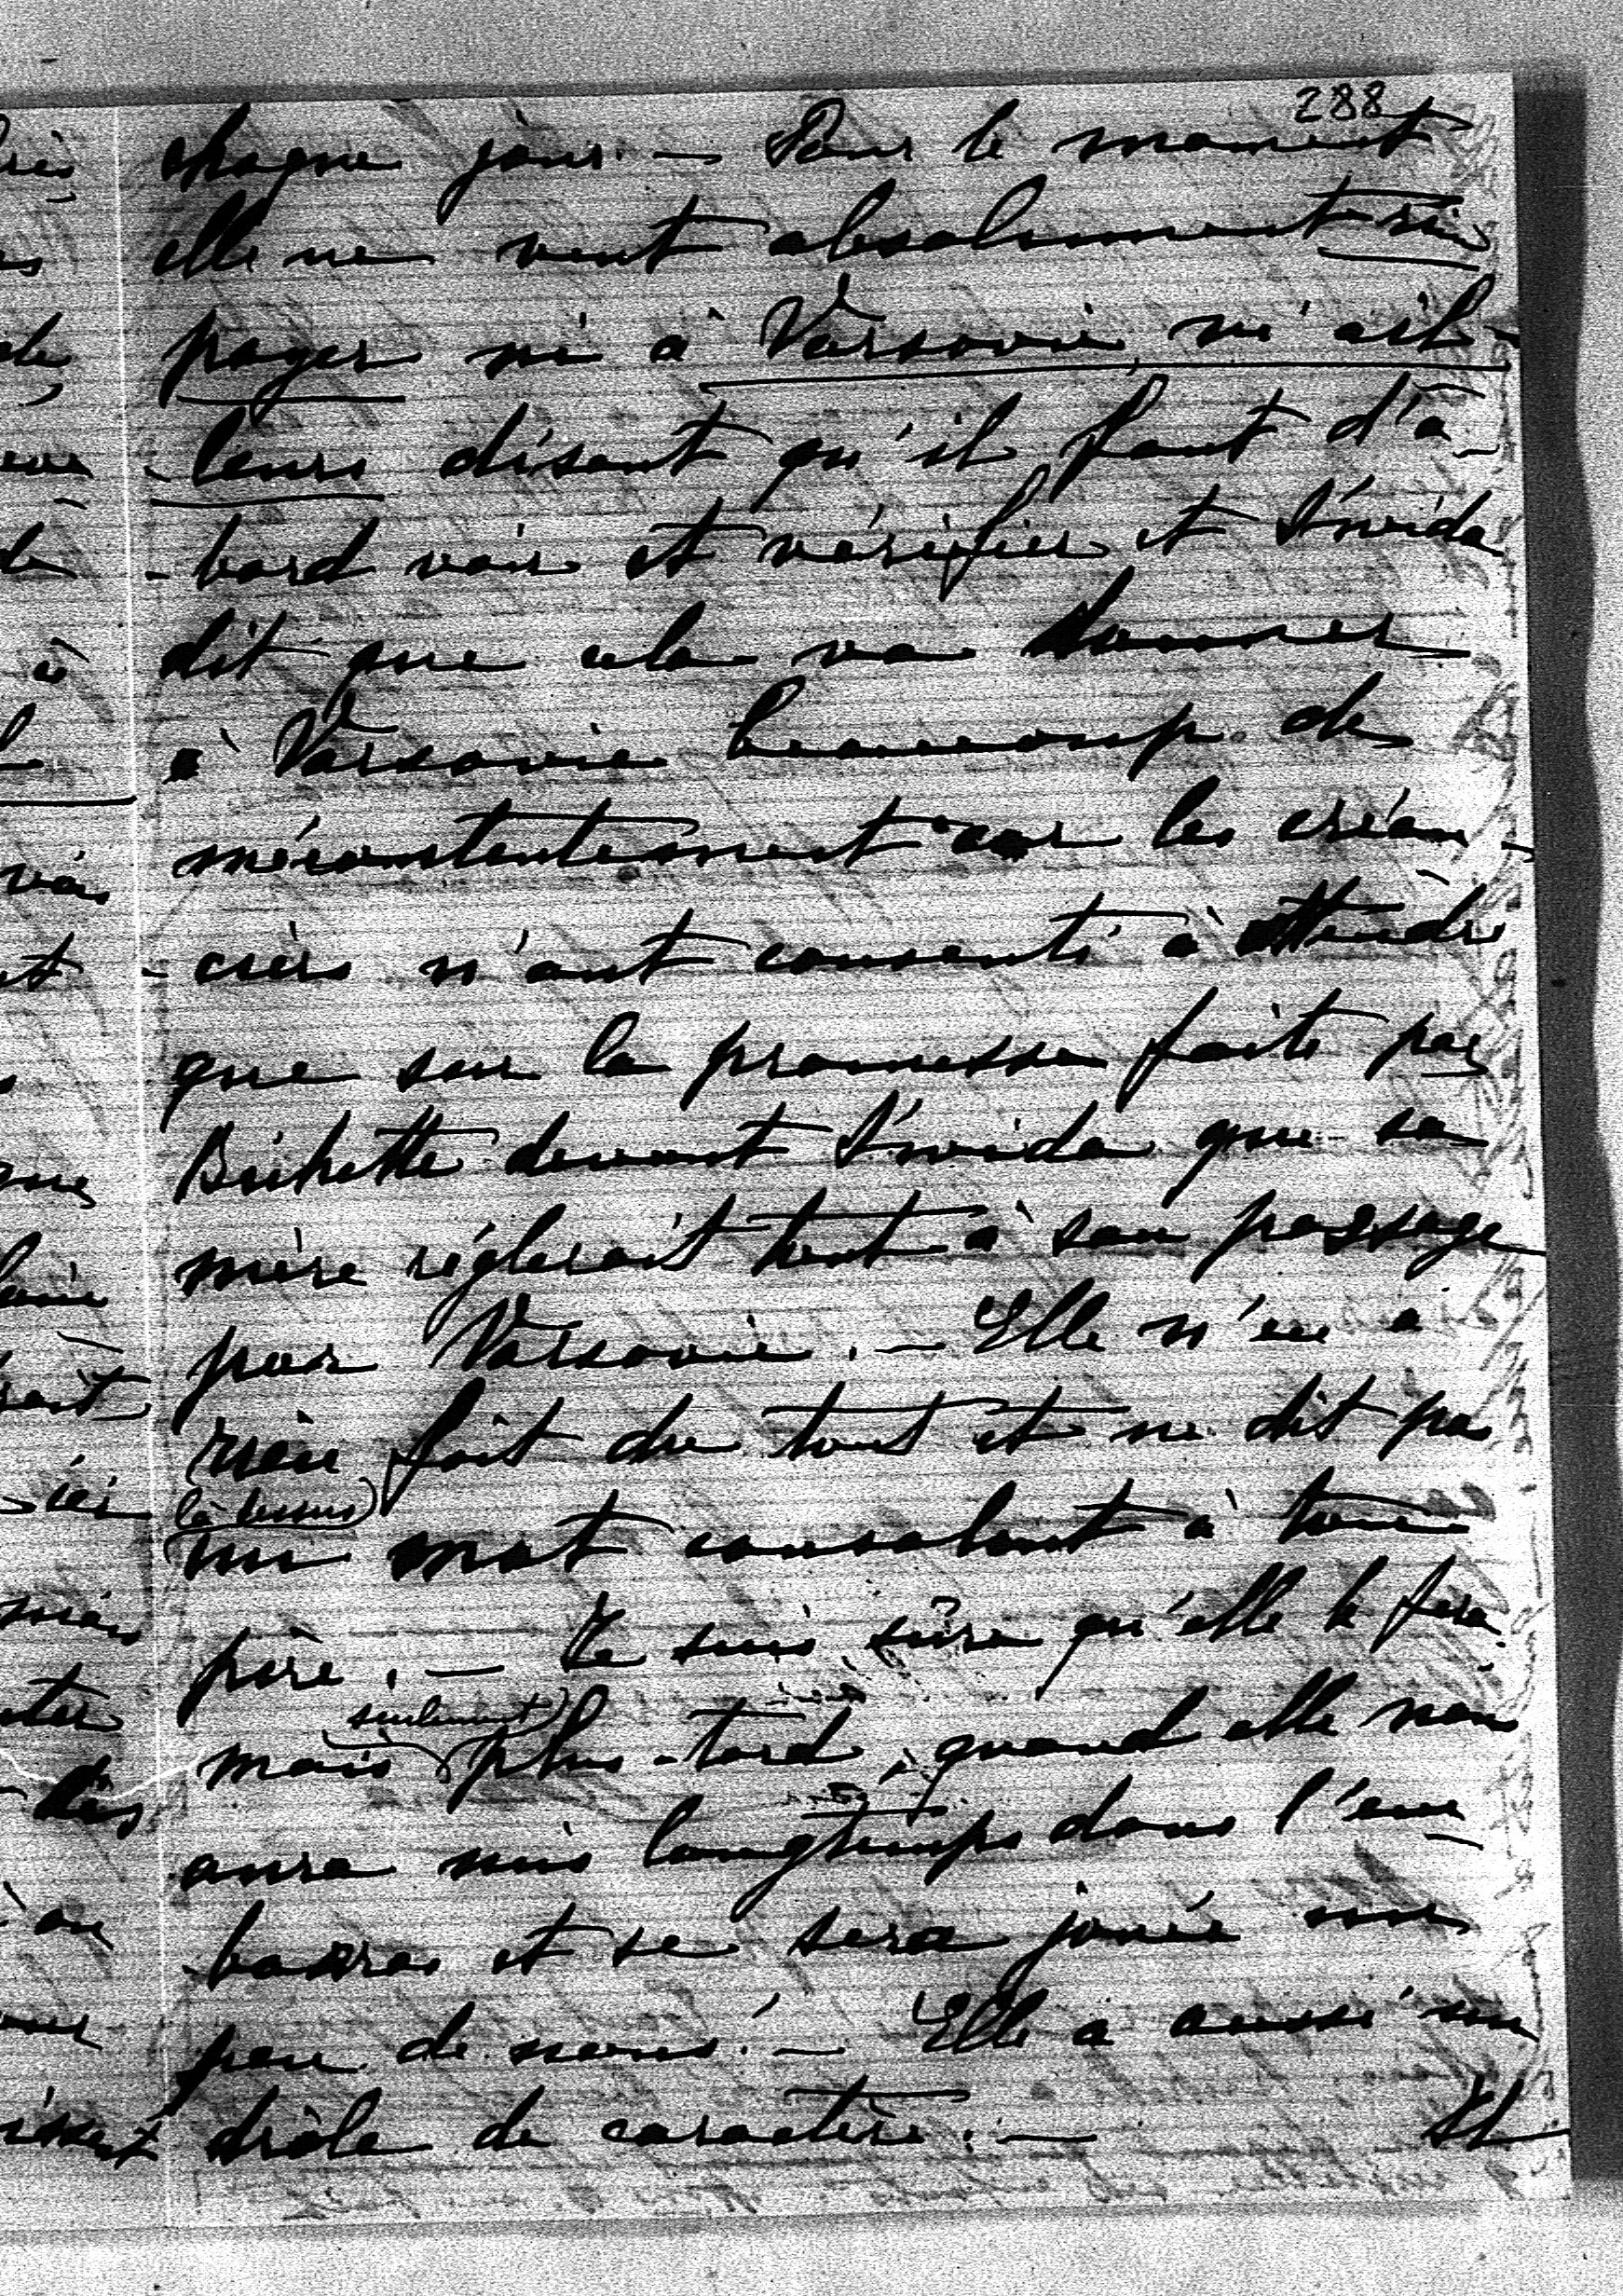 288
chaque jour. — Pour le moment
elle ne veut absolument rien
payer ni à Varsovie, ni ail-
-leurs disant qu'il faut d'a-
-bord voir et vérifier et
dit que cela va donner
à Varsovie beaucoup de
mécontentement car les créan-
-ciers n'ont consenti à attendre
que sur la promesse faite par
Bichette devant que sa
mère réglerait tout à son passage
par Varsovie. — Elle n'en a
rien fait du tout et ne dit pas
là dessus
un mot consolant à ton
père. — Je suis sûre qu'elle le fera
seulement
mais plus-tard, quand elle nous
aura mis longtemps dans l'em-
-barras et se sera jouée un
peu de nous! — Elle a aussi un
drôle de caractère. —